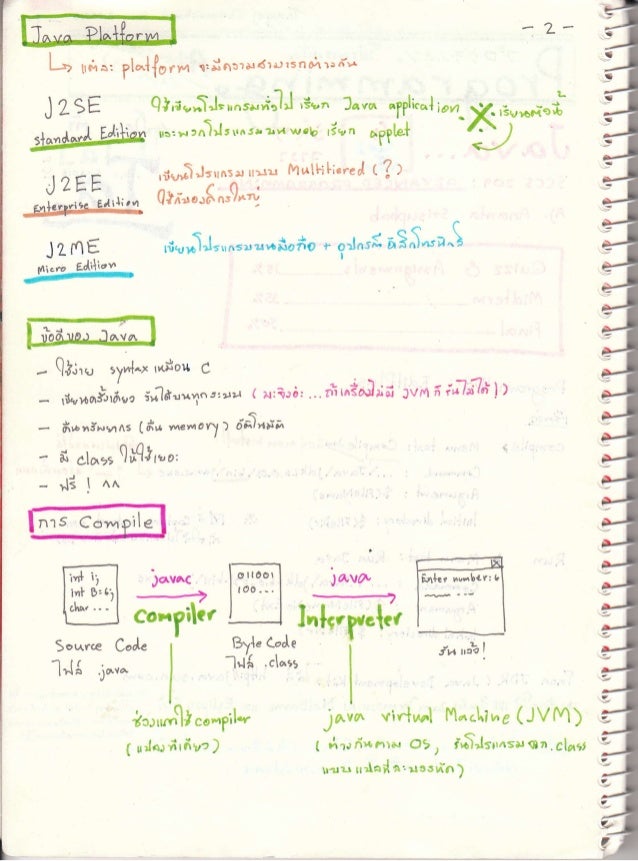 Java Platform
- 2 -
↳ แต่ละ platform จะมีความสามารถต่างกัน
J2SE ใช้เขียนโปรแกรมทั่วไป เรียก Java application. ※ เรียนตัวนี้
Standard Edition และพวกโปรแกรมบน web เรียก applet
J2EE เขียนโปรแกรมแบบ Multitiered (?)
Enterprise Edition ใช้กับองค์กรใหญ่
J2ME เขียนโปรแกรมบนมือถือ + อุปกรณ์อิเล็กโทรนิกส์
Micro Edition
ข้อดีของ Java
- ใช้ง่าย syntax เหมือน C
- เขียนครั้งเดียว รันได้บนทุกระบบ (นะจ๊ะ... ถ้าเครื่องไม่มี JVM ก็รันไม่ได้!)
- คืนทรัพยากร (คืน memory) อัตโนมัติ
- มี class ให้ใช้เยอะ
- ฟรี ! ^^
การ Compile
int i;
int B=6;
char ...
javac
Compiler
011001
100...
java
Interpreter
Enter number: 6
Source Code
ไฟล์ .java
Byte Code
ไฟล์ .class
รันแล้ว!
ช่วงแรกใช้ compiler
(แปลงทีเดียว)
java virtual Machine (JVM)
(ต่างกันตาม OS, รันโปรแกรมจาก .class
แบบแปลทีละบรรทัด)